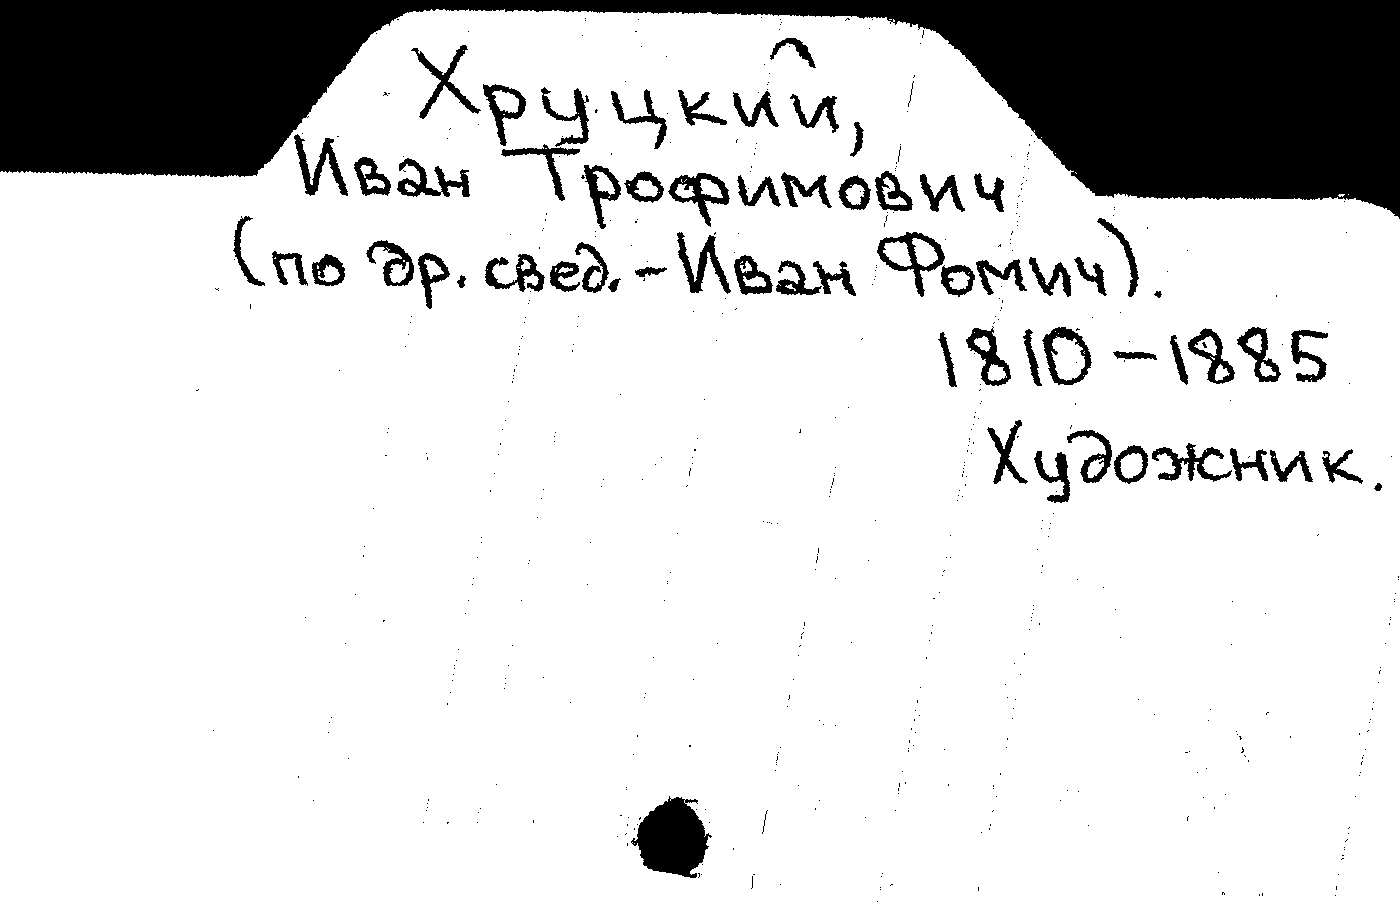 Хруцкий,
Иван Трофимович
(по др. свед. - Иван Фомич).
1810-1885
Художник.